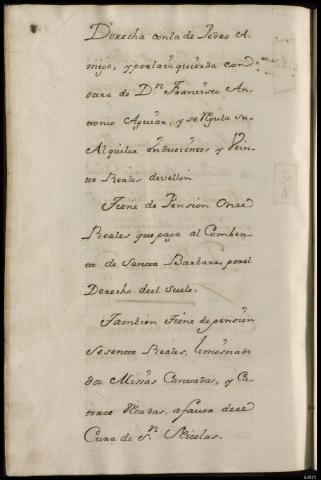 Derecha con la de Pedro A
migo, y por la ysquierda con
otra de Dn. Francisco An
tonio Aguiar, y se regula su
Alquiler en ducientos y Vein
te Reales de vellon.
Tiene de Pension Onze
Reales que paga al Comben
to de Santa Barbara, por el
Derecho de el Suelo.
Tambien tiene de pensiòn
Sesenta Reales, limosna de
dos Misas Cantadas, y Ca
torce Rezadas, a favor de el
Cura de Sn. Nicolas.